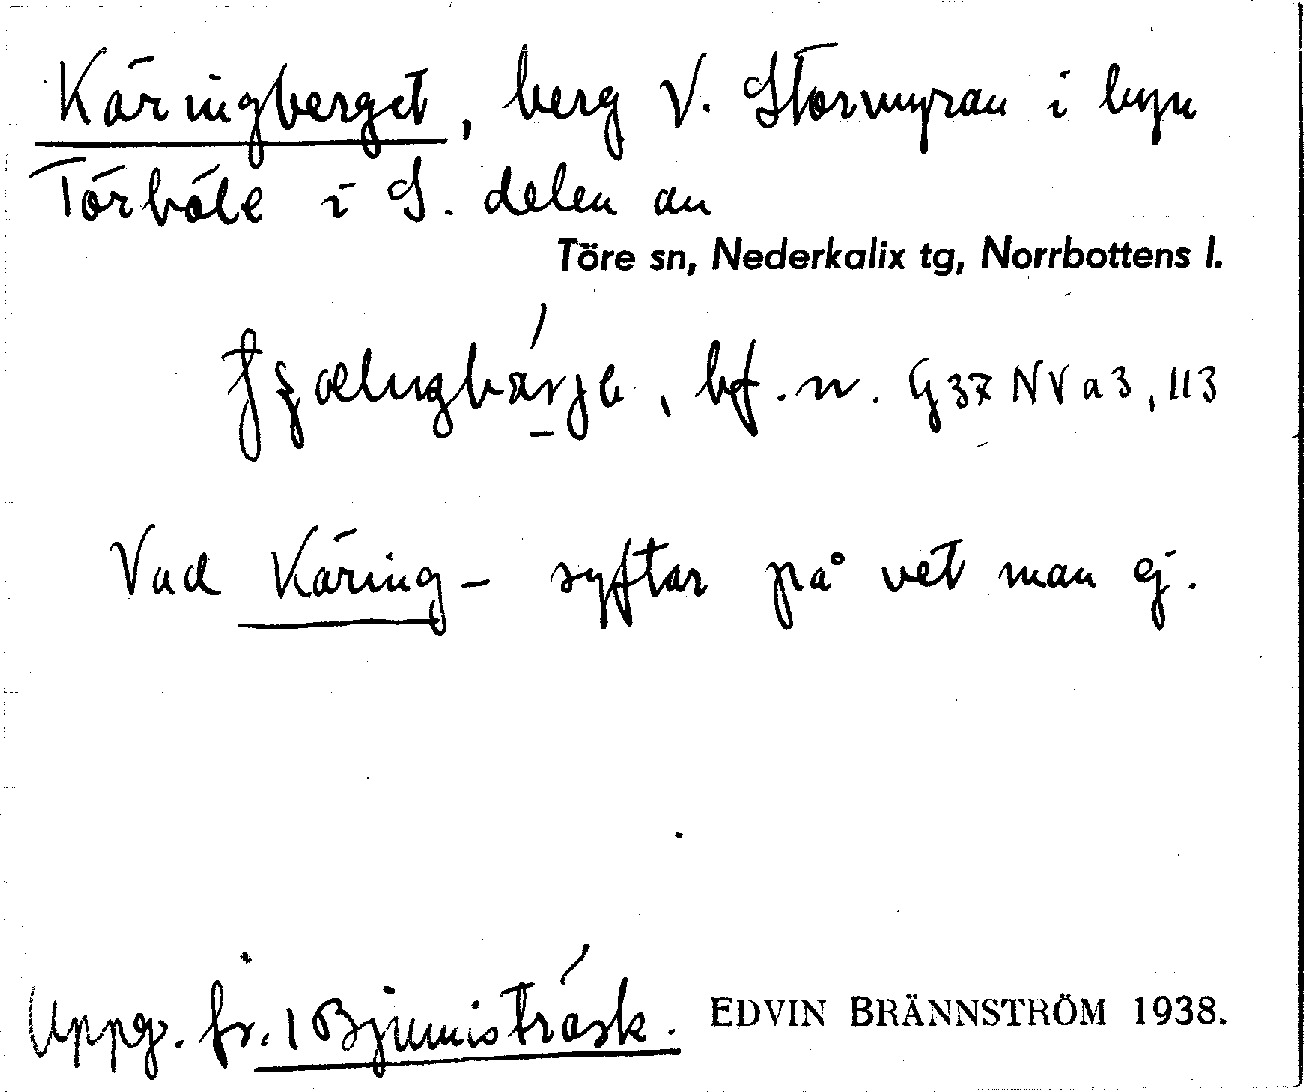 Käringberget, berg V. Stormyran i byn
Törböle i S. delen av
Töre sn, Nederkalix tg, Norrbottens l.
bf. n. G37 NV a3, 113
Vad Käring- syftar på vet man ej.
Uppg. fr. Bjumisträsk. EDVIN BRÄNNSTRÖM 1938.